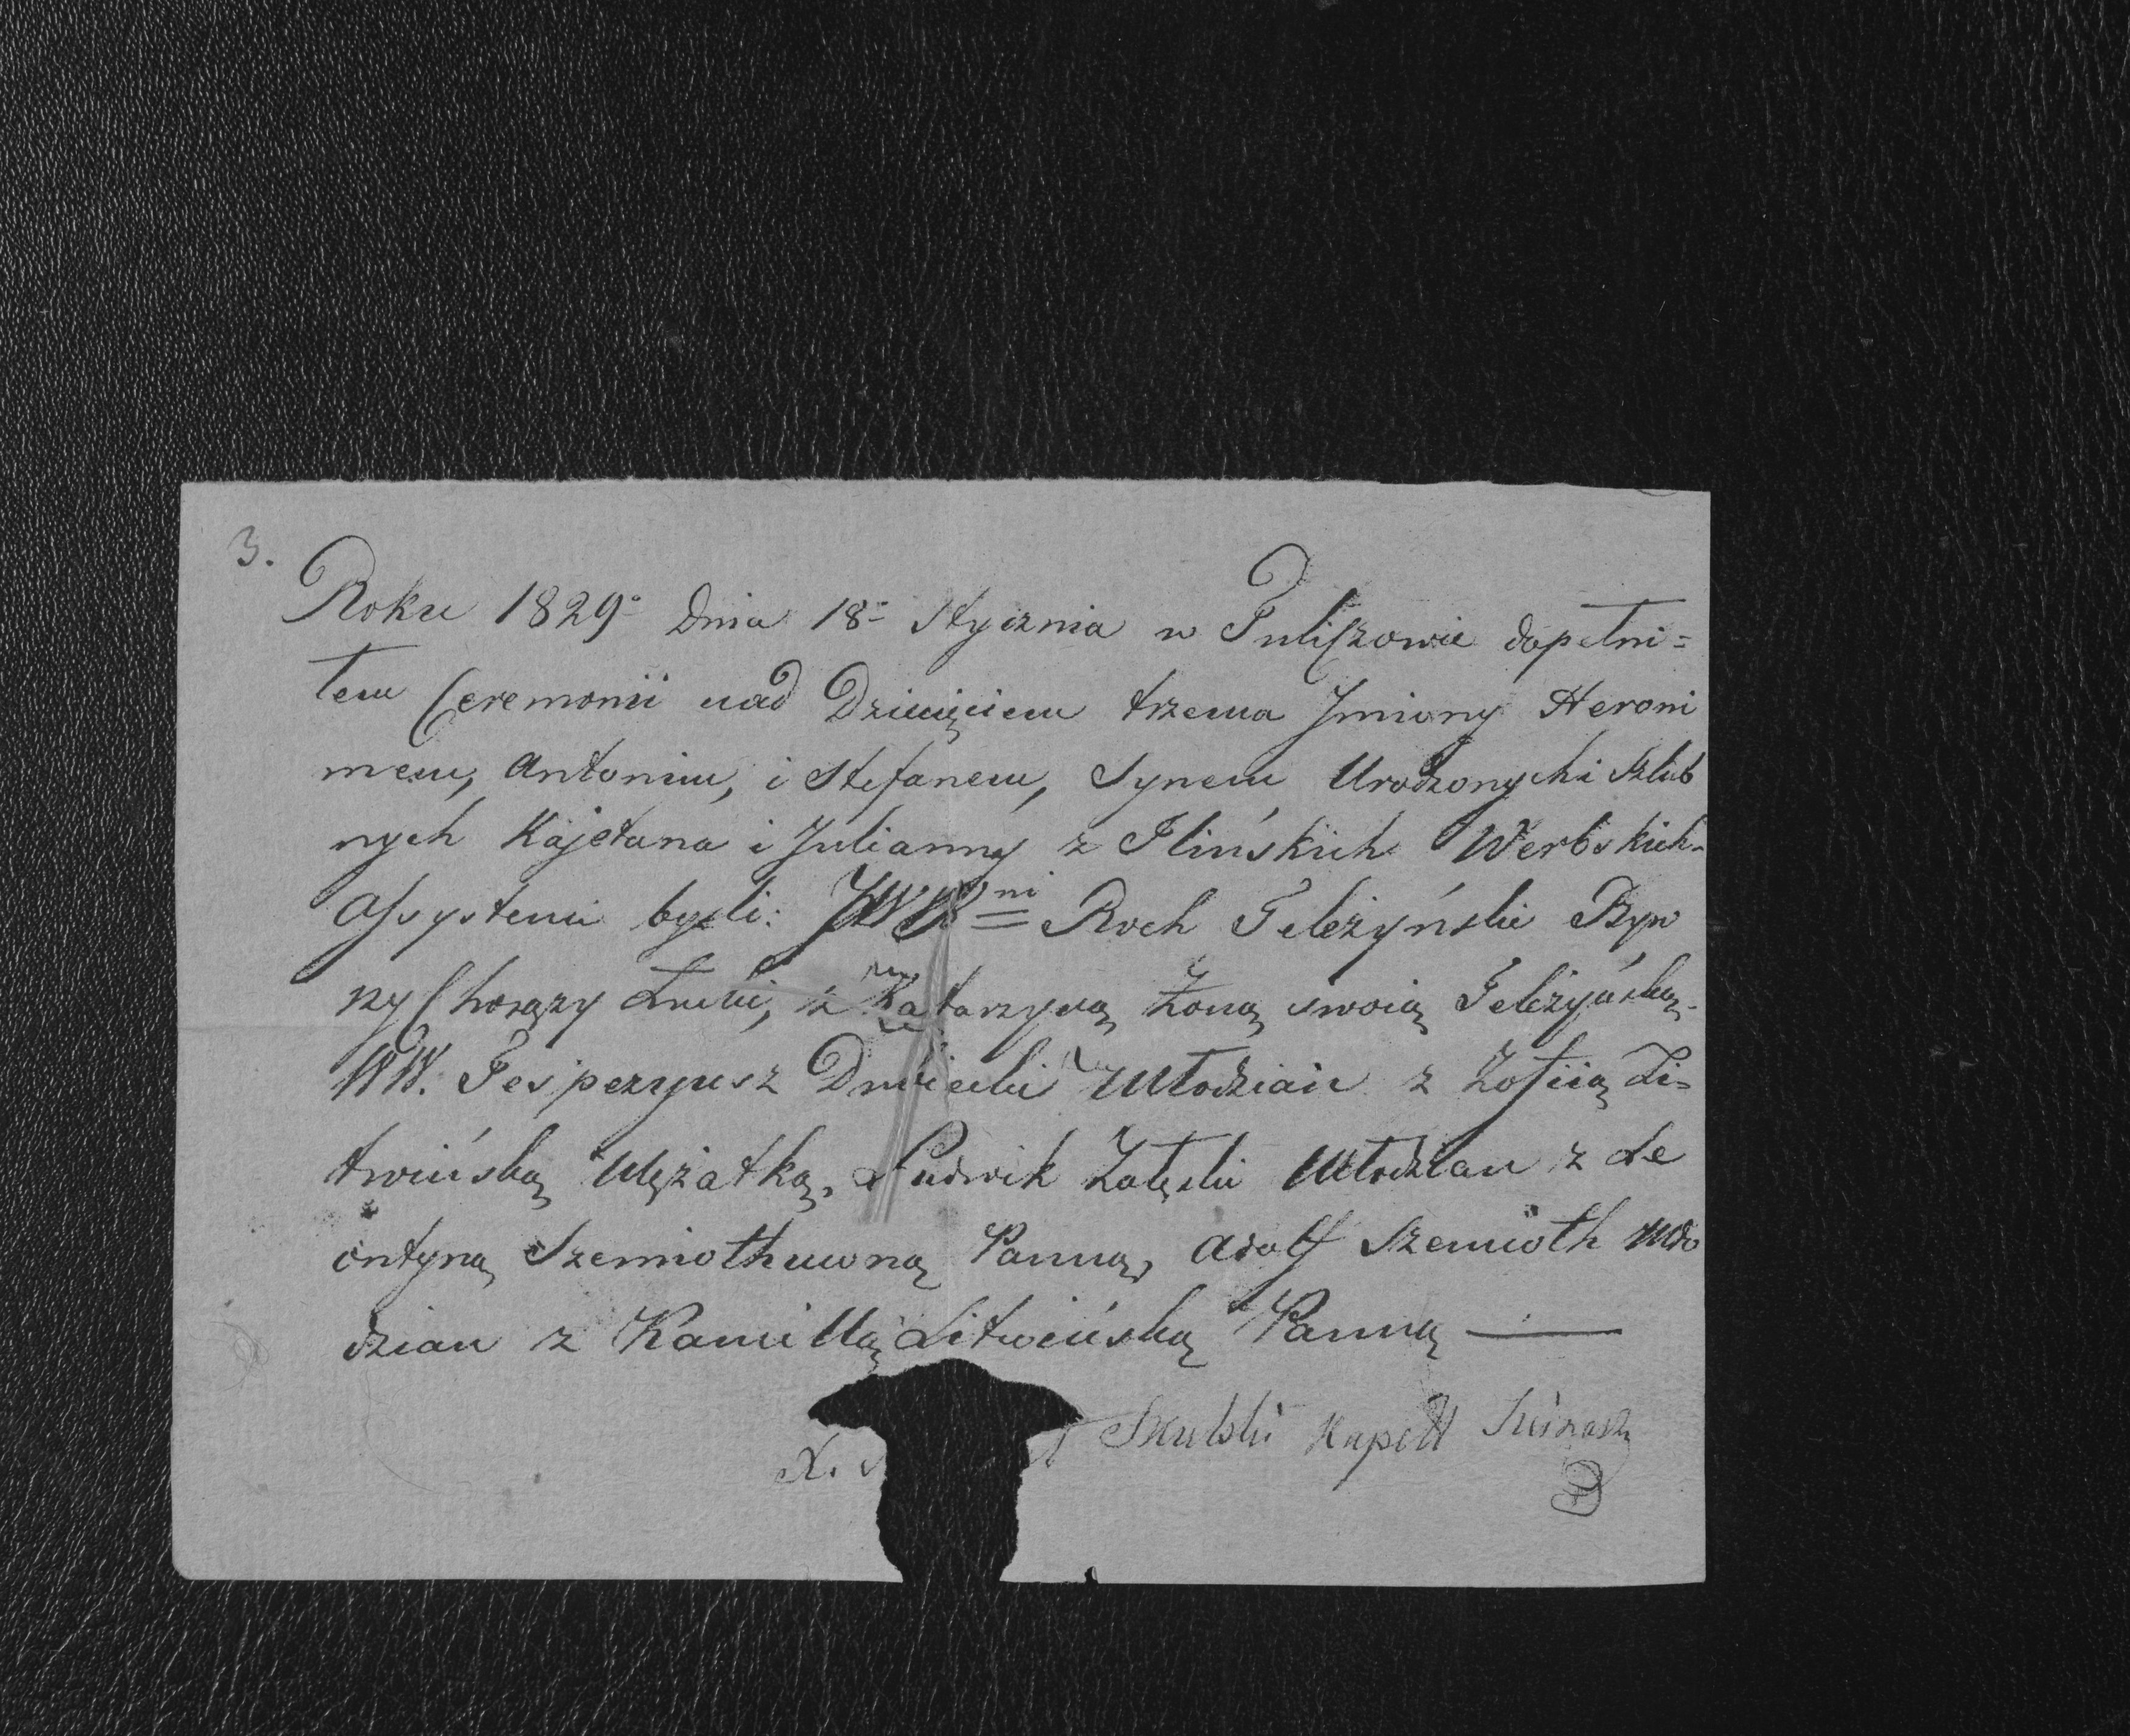 3.
Roku 1829° Dnia 18° Stycznia w Puliszowie dopełni=
łem Ceremonii nad Dziecięciem trzema Jmiony Heroni
mem, Antonim, i Stefanem, Synem Urodzonych i Szlub
nych Kajetana i Julianny z Ilińskich Werbskich.
Assystenci byli: JWW ni Roch Teleżyński
Chorąży Łucki, z Katarzyną Żoną swoią Teleżyńską.
WW. Drwiecki Młodzian z Zofiią Li=
twińską Mężatką, Ludwik Załęski Młodzian z Le
ontyną Szemiothuwną Panną, Adolf Szemioth Mło
dzian z Kamillą Litwińską Panną
X. Skulski Kapell